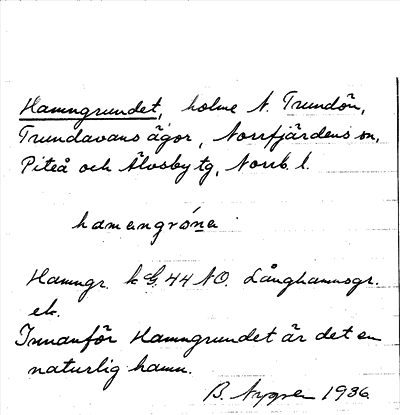 Hamngrundet, holme N. Trundön,
Trundavans ägor, Norrfjärdens sn,
Piteå och Älvsby tg, Norrb. l.
hamengróne
Hamngr. k G. 44 NO. Långhamnsgr.
ek.
Innanför Hamngrundet är det en
naturlig hamn.
B. Nygren 1936